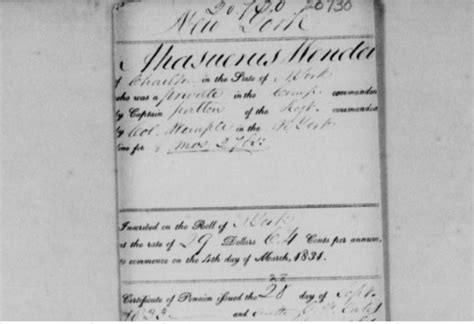 20,720 20730
New York
Ahasuerus Wendel
of Charlton in the State of N York
who was a private in the Comp. commanded
by Captain of the Regt. commanded
by Col. Wemple in the N York
line for 8 mos 27 ds
Inscribed on the Roll of N York
at the rate of 29 Dollars 64 Cents per annum,
to commence on the 4th day of March, 1831.
Certificate of Pension issued the 28 day of Sept.
1833 and